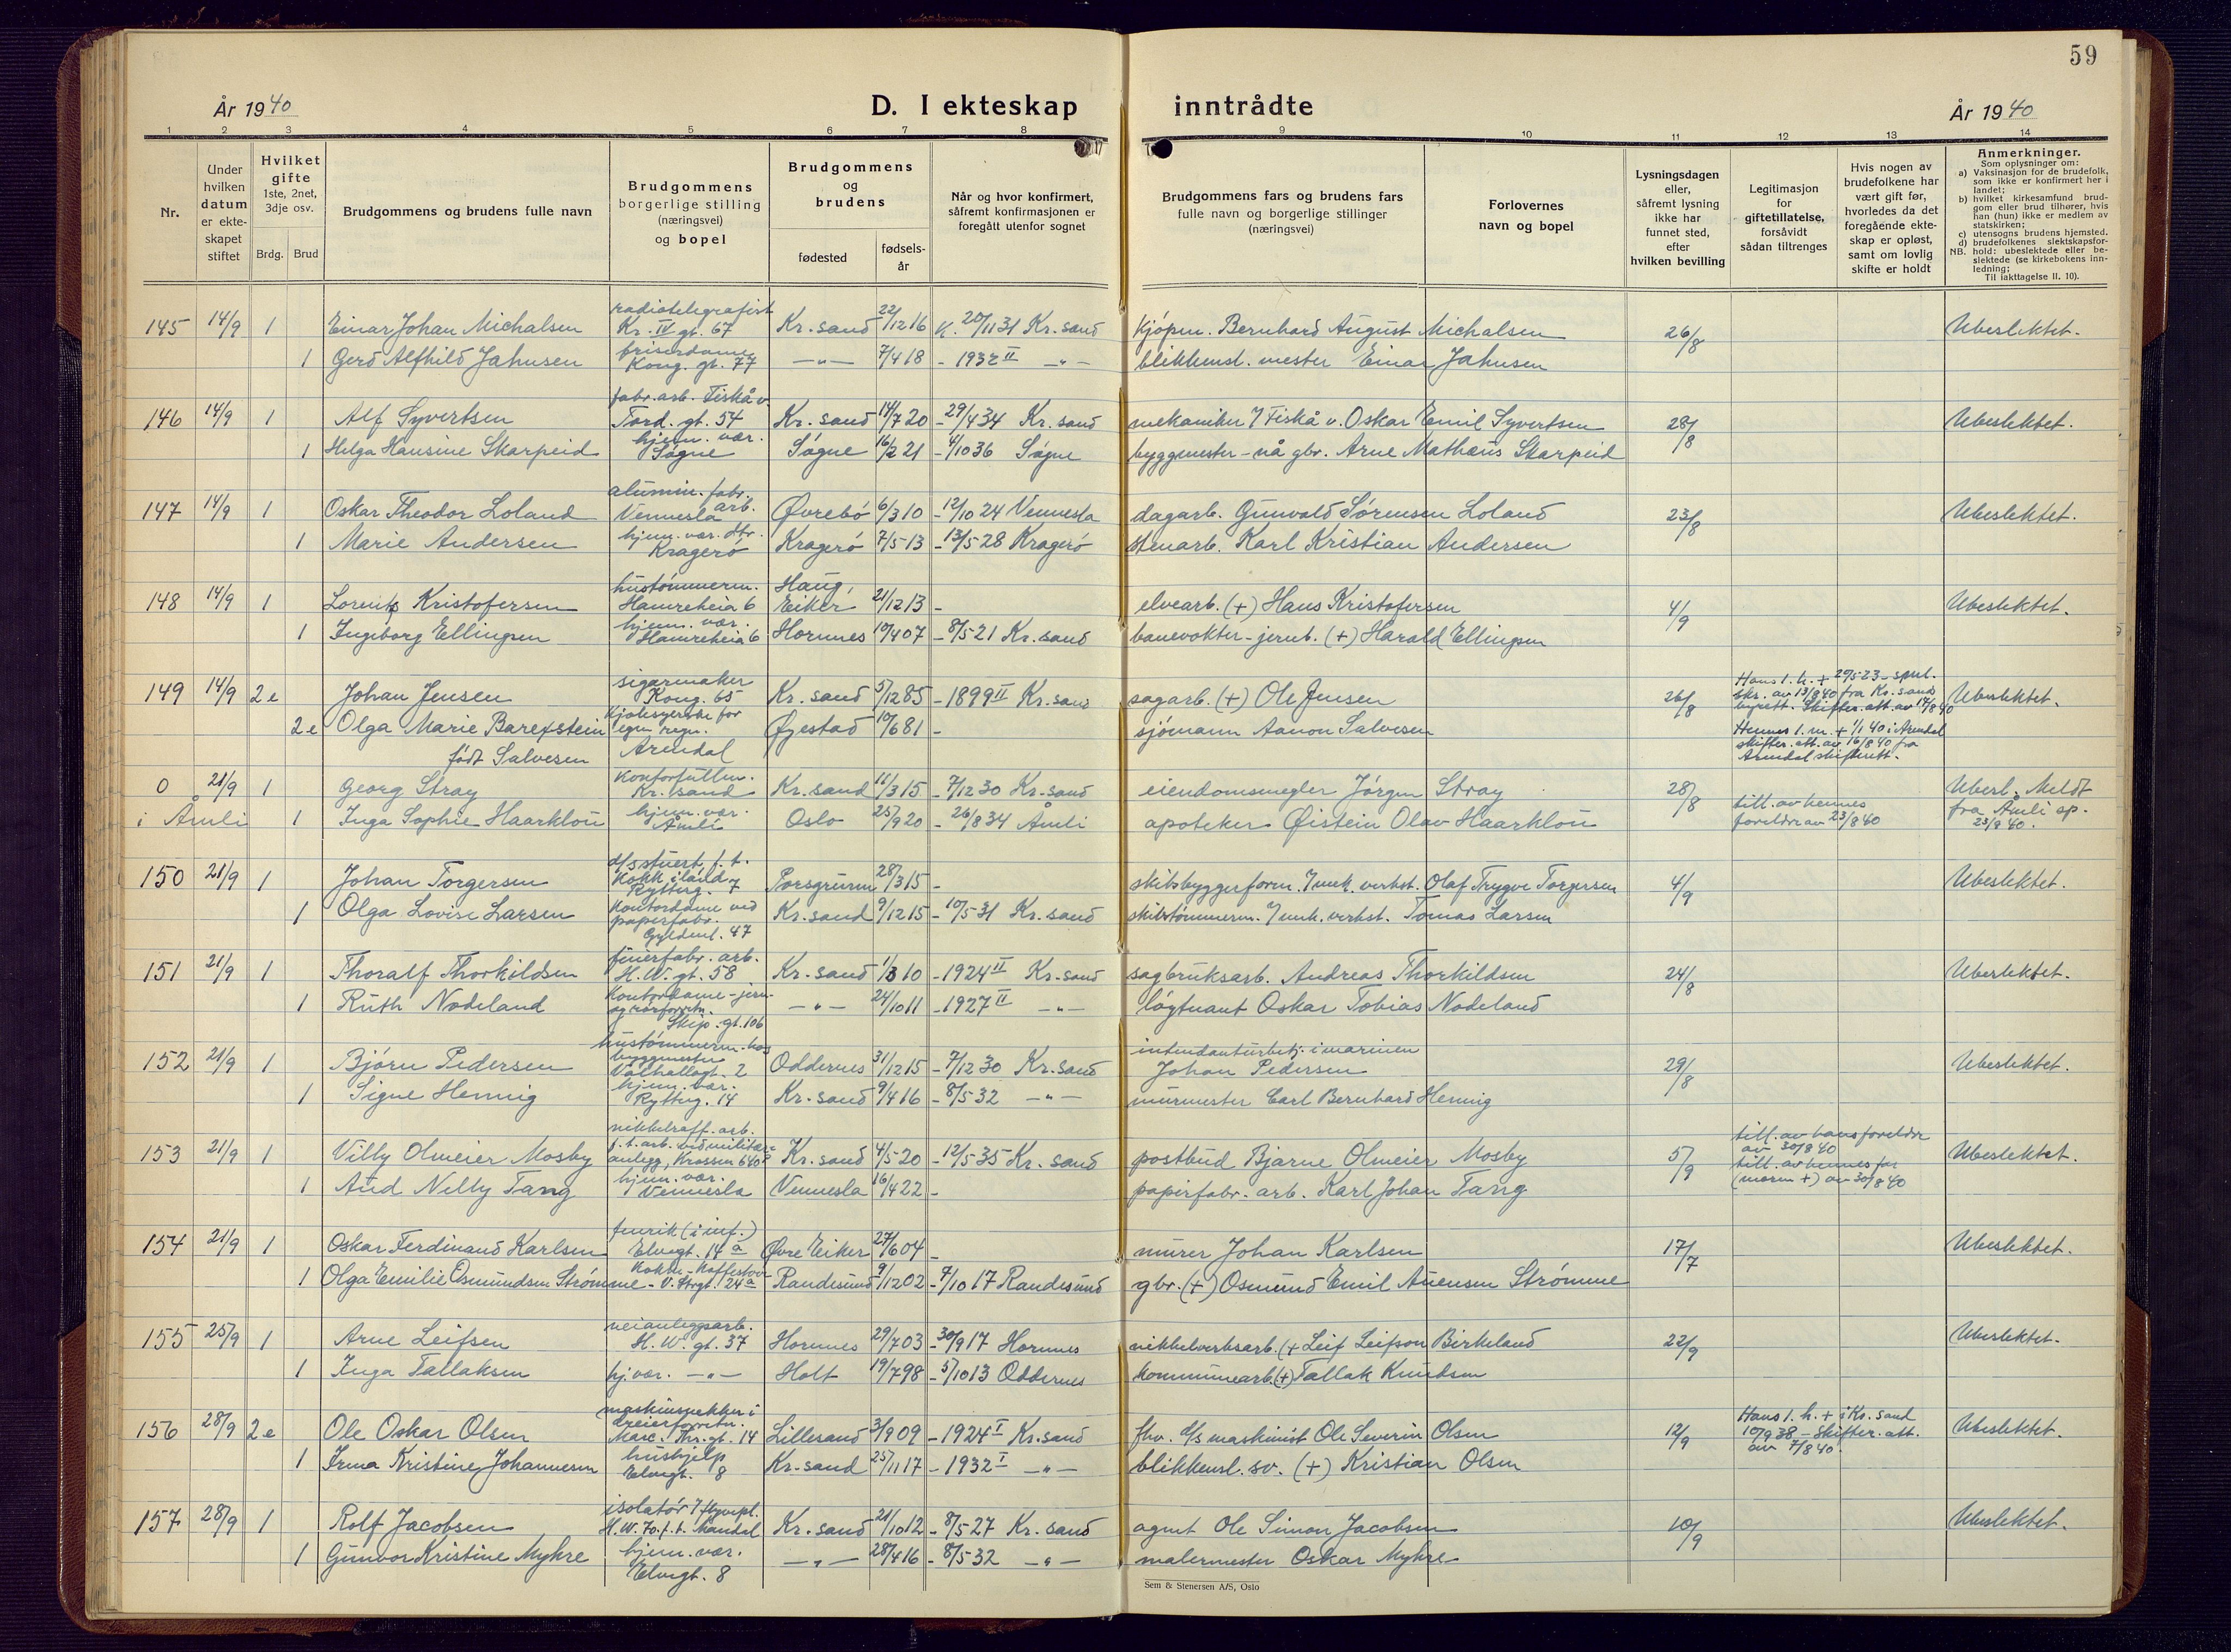 59
År 1940
D. I ekteskap inntrådte
År 1940
1 2 3 4 5 6 7 8 9 10 11 12 13 14
Nr.
Under hvilken datum er ekteskapet stiftet
Hvilket gifte 1ste, 2net, 3dje osv.
Brdg. Brud
Brudgommens og brudens fulle navn
Brudgommens borgerlige stilling (næringsvei) og bopel
Brudgommens og brudens
fødested
fødselsår
Når og hvor konfirmert, såfremt konfirmasjonen er foregått utenfor sognet
Brudgommens fars og brudens fars fulle navn og borgerlige stillinger (næringsvei)
Forlovernes navn og bopel
Lysningsdagen eller, såfremt lysning ikke har funnet sted, efter hvilken bevilling
Legitimasjon for giftetillatelse, forsåvidt sådan tiltrenges
Hvis nogen av brudefolkene har vært gift før, hvorledes da det foregående ekteskap er opløst, samt om lovlig skifte er holdt
Anmerkninger.
Som oplysninger om:
a) Vaksinasjon for de brudefolk, som ikke er konfirmert her i landet;
b) hvilket kirkesamfund brudgom eller brud tilhører, hvis han (hun) ikke er medlem av statskirken;
c) utensogns brudens hjemsted.
d) brudefolkenes slektskapsforhold: ubeslektede eller beslektede (se kirkebokens innledning;
NB. Til iakttagelse II, 10).
145 14/9 1 Einar Johan Michalsen radiotelegrafist Kr. IV gt. 67 Kr.sand 22/12 16 K. 20/11 31 Kr.sand kjøpm. Bernhard August Michalsen 26/8 Ubeslektet.
1 Gerd Alfhild Jahnsen friserdame Kong. gt. 77 —"— 7/4 18 - 1932 II —"— blikkensl. mester Einar Jahnsen
146 14/9 1 Alf Syvertsen fabr.arb. Fiskå v. Tord. gt. 54 Kr.sand 14/7 20 - 29/4 34 Kr.sand mekaniker / Fiskå v. Oskar Emil Syvertsen 28/8 Ubeslektet.
1 Helga Hansine Skarpeid hjem. vær. Søgne Søgne 16/2 21 - 4/10 36 Søgne byggmester - nå gbr. Arne Mathæus Skarpeid
147 14/9 1 Oskar Theodor Loland alumin. fabr. arb. Vennesla Øvrebø 6/3 10 - 12/10 24 Vennesla dagarb. Gunvald Sørensen Loland 23/8 Ubeslektet.
1 Marie Andersen hjem. vær. dtr. Kragerø Kragerø 7/5 13 - 13/5 28 Kragerø stenarb. Karl Kristian Andersen
148 14/9 1 Lorentz Kristofersen hustømmerm. Hamreheia 6 Haug, Eiker 21/12 13 - elvearb. (+) Hans Kristofersen 4/9 Ubeslektet.
1 Ingeborg Ellingsen hjem. vær. Hamreheia 6 Hornnes 10/4 07 - 8/5 21 Kr.sand banevokter - jernb. (+) Harald Ellingsen
149 14/9 2e Johan Jensen sigarmaker Kong. 65 Kr.sand 5/12 85 - 1899 II Kr.sand sagarb. (+) Ole Jensen 26/8 Hans 1. h. + 29/5 23 - spesl. ekr. av 13/8 40 fra Kr.sands byrett. Skifter. att. av 17/8 40 Ubeslektet.
2e Olga Marie Barexstein født Salvesen kjolesyerske for egen regn. Arendal Øyestad 10/6 81 - sjømann Aanon Salvesen Hennes 1. m. + 1/1 40 i Arendal skifter. att. av 16/8 40 fra Arendal skifterett.
0 21/9 1 Georg Stray kontorfullm. Kr.sand Kr.sand 11/3 15 - 7/12 30 Kr.sand eiendomsmegler Jørgen Stray 28/8 Ubesl. Meldt fra Åmli sp. 23/9 40.
i Åmli 1 Inga Sophie Haarklou hjem. vær. Åmli Oslo 25/9 20 - 26/8 34 Åmli apoteker Øistein Olav Haarklou till. av hennes foreldre av 23/8 40
150 21/9 1 Johan Torgersen d/s stuert, f. t. kokk i land Rytterg. 7 Porsgrunn 28/3 15 - skibsbyggerform. / mek. verkst. Olaf Trygve Torgersen 4/9 Ubeslektet.
1 Olga Lovise Larsen kontordame ved papirfabr. Gyldenl. 47 Kr.sand 9/12 15 - 10/5 31 Kr.sand skibstømmerm. / mek. verkst. Tomas Larsen
151 21/9 1 Thoralf Thorkildsen finerfabr. arb. H.W. gt. 58 Kr.sand 1/3 10 - 1924 II Kr.sand sagbruksarb. Andreas Thorkildsen 24/8 Ubeslektet.
1 Ruth Nodeland kontordame - jern- og rørforretn. Skip. gt. 106 —"— 24/10 11 - 1927 II —"— løytnant Oskar Tobias Nodeland
152 21/9 1 Bjørn Pedersen hustømmerm. hos byggmester Valhallagt. 2 Oddernes 31/12 15 - 7/12 30 Kr.sand intendanturbetj. i marinen Johan Pedersen 29/8 Ubeslektet.
1 Signe Hennig hjem. vær. Rytterg. 14 Kr.sand 9/4 16 - 8/5 32 —"— murmester Carl Bernhard Hennig
153 21/9 1 Villy Olmeier Mosby nikkelraff. arb. f. t. arb. ved militær-anlegg, Krossen Kr.sand 4/5 20 - 12/5 35 Kr.sand postbud Bjarne Olmeier Mosby 5/9 till. av hans foreldre av 30/8 40 Ubeslektet.
1 Aud Nelly Tang hjem. vær. Vennesla Vennesla 16/4 22 - papirfabr. arb. Karl Johan Tang till. av hennes far (moren +) av 30/8 40
154 21/9 1 Oskar Ferdinand Karlsen fenrik (i inf.) Elvegt. 14 a Øvre Eiker 27/6 04 - murer Johan Karlsen 17/7 Ubeslektet.
1 Olga Emilie Osmundsen Strømme kokke - kaffestova - V. Strgt. 24 a Randesund 9/12 02 - 7/10 17 Randesund gbr. (+) Osmund Emil Auensen Strømme
155 25/9 1 Arne Leifsen veianleggsarb. H.W. gt. 37 Hornnes 29/7 03 - 30/9 17 Hornnes nikkelverksarb. (+ Leif Leifson Birkeland 22/9 Ubeslektet.
1 Inga Tallaksen hj.vær. —"— Holt 19/7 98 - 5/10 13 Oddernes kommunearb. (+) Tallak Knudsen
156 28/9 2e Ole Oskar Olsen dreierforretn. Marc. Thr. gt. 14 Lillesand 3/9 09 - 1924 I Kr.sand fhv. d/s maskinist Ole Severin Olsen 12/9 Hans 1. h. + i Kr.sand 10/9 38 - Skifter. att. av 7/8 40. Ubeslektet.
1 Irma Kristine Johannesen hushjelp Elvegt. 8 Kr.sand 25/11 17 - 1932 I —"— blikkensl. sv. (+) Kristian Olsen
157 28/9 1 Rolf Jacobsen isolatør / flyvepl. H.W. 70. f. t. Mandal Kr.sand 21/10 12 - 8/5 27 Kr.sand agent Ole Simon Jacobsen 10/9 Ubeslektet.
1 Gunvor Kristine Myhre hjem. vær. Elvegt. 8 —"— 28/4 16 - 8/5 32 —"— malermester Oskar Myhre
Sem & Stenersen A/S, Oslo